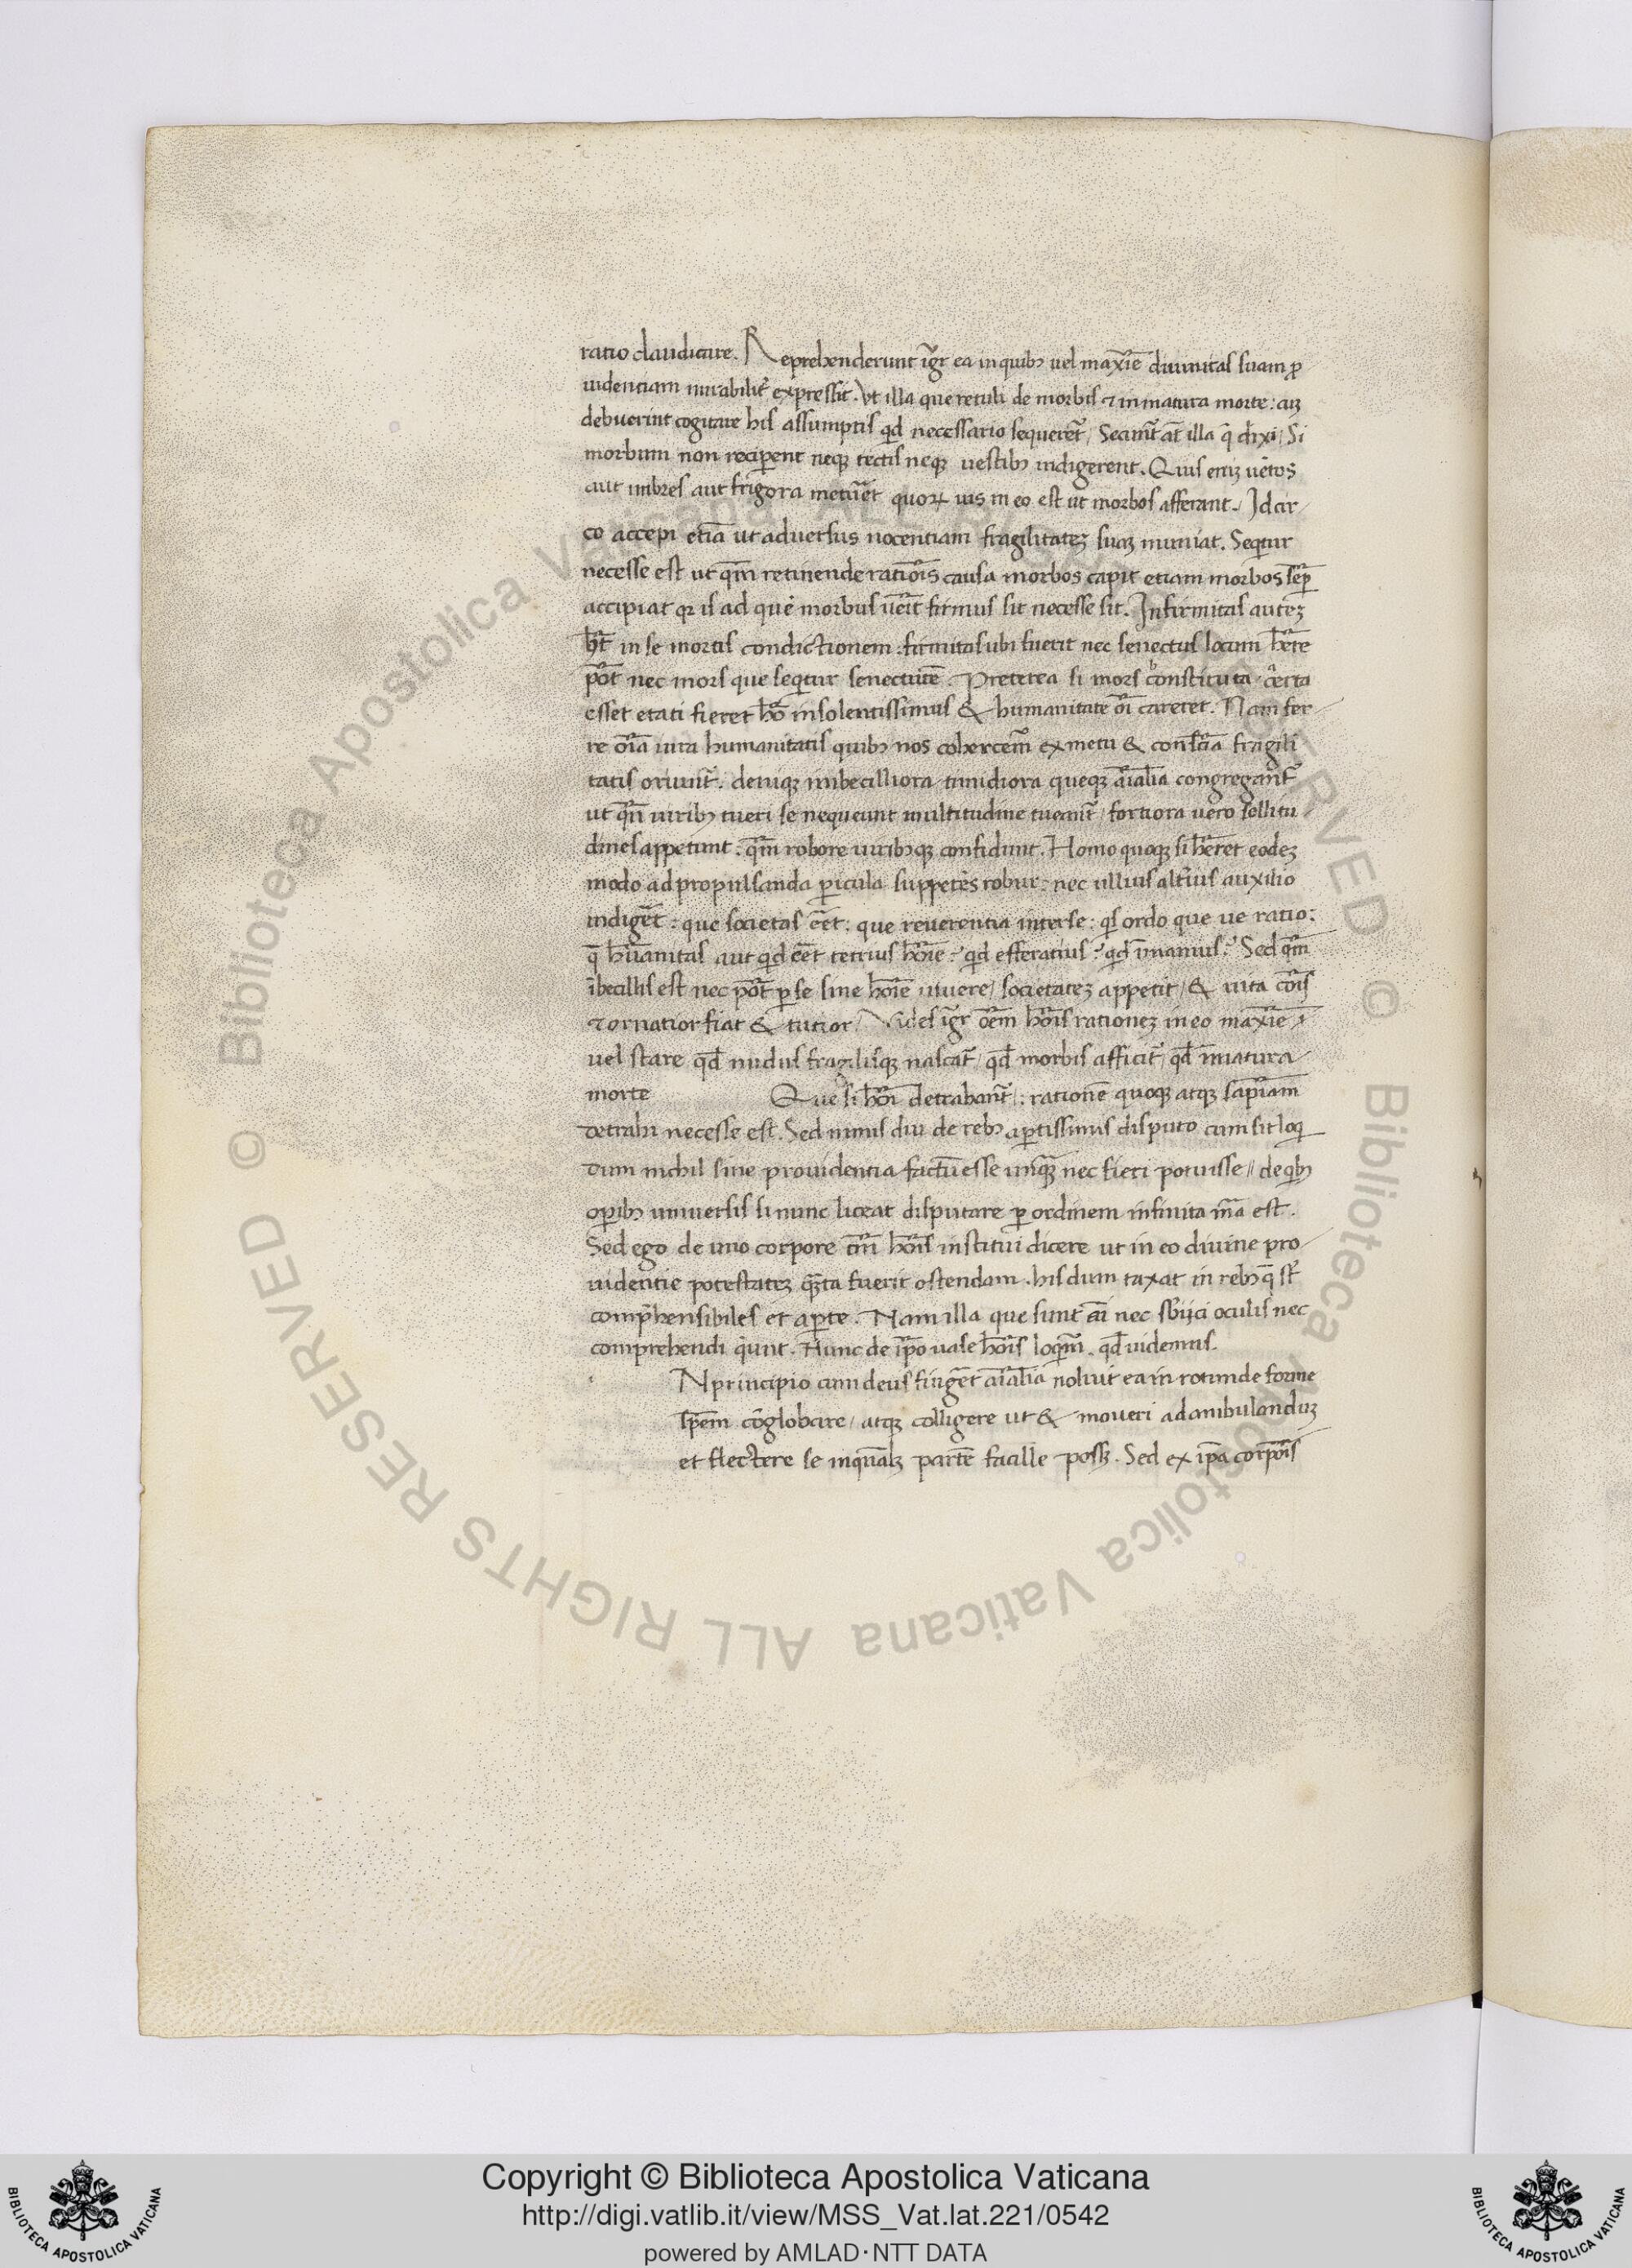 ratio claudicare. Reprehenderunt igr̃ ea in quibꝫ uel maxĩe diuinitas suam ꝓ
uidentiam mirabilit̃ expressit. Vt illa que retuli de morbis ⁊ inmatura morte: aꝫ
debuerint cogitare his assumptis qͥd necessario sequeret̃/ Secunt̃ at̃ illa q̃ dixi/ Si
morbum non reciꝑent neqꝫ tectis neqꝫ uestibꝫ indigerent. Quis eniꝫ uẽtos
aut imbres aut frigora metuẽt quoꝝ uis in eo est ut morbos afferant. Idcir
co accepi etiã ut aduersus nocentiam fragilitateꝫ suaꝫ muniat. Seqͥtur
necesse est ut qm̃ retinende rationis causa morbos capit etiam morbos semꝑ
accipiat qꝛ is ad quẽ morbus uẽit firmus sit necesse sit. Infirmitas auteꝫ
hꝫt̃ in se mortis condictionem. firmitas ubi fuerit nec senectus locum hẽre
põt nec mors que seqͥtur senectutẽ. Preterea si mors constituta certa
esset etati fieret hõ insolentissimus & humanitate oĩ careret. Nam fer
re oĩa iura humanitatis quibꝫ nos cohercem̃ ex metu & consciã fragili
tatis oriunt̃. deniqꝫ imbecilliora timidiora queqꝫ aĩalia congregant̃
ut qñ uiribꝫ tueri se nequeunt multitudine tueant̃/ fortiora uero sollitu
dines appetunt. qm̃ robore uiribꝫqꝫ confidunt. Homo quoqꝫ si hẽret eodeꝫ
modo ad propulsanda ꝑicula suppetẽs robur: nec ullius alt̃ius auxilio
indigẽt: que societas eẽt: que reuerentia inter se: qͥs ordo que ue ratio:
q̃ hũanitas aut qͥd eẽt tetrius hoĩe: qͥd efferatius: qͥd ĩmanius: Sed qm̃
ĩbecillis est nec põt ꝑ se sine hoĩe uiuere/ societateꝫ appetit/ & uita cõis
⁊ ornatior fiat & tutior/ Vides igr̃ oẽm hoĩs rationeꝫ in eo maxĩe
uel stare qd̃ nudus fragilisqꝫ nascat̃/ qd̃ morbis afficit̃/ qd̃ ĩmatura
morte Que si hoĩ detrahant̃: rationẽ quoqꝫ atqꝫ sapĩam
detrahi necesse est. Sed nimis diu de rebꝫ aꝑtissimis disputo cum sit loq
dum nichil sine prouidentia factũ esse unqꝫ nec fieri potuisse// de qͥbꝫ
oꝑibꝫ uniuersis si nunc liceat disputare ꝑ ordinem infinita mã est.
Sed ego de uno corpore tm̃ hoĩs institui dicere ut in eo diuine pro
uidentie potestateꝫ qꝫta fuerit ostendam. his dum taxat in rebꝫ q̃ st̃
comp̃hensibiles et aꝑte. Nam illa que sunt aĩ nec sbijci oculis nec
comprehendi qͥunt. Nunc de ip̃o uase hoĩs loqm̃. qd̃ uidemus.
N principio cum deus fingẽt aĩalia noluit ea in rotunde forme
sp̃em cõglobare/ atqꝫ colligere ut & moueri ad ambulanduꝫ
et flectere se in quãlꝫ partẽ facille possꝫ. Sed ex ip̃a corꝑis
© Biblioteca Apostolica Vaticana ALL RIGHTS RESERVED
© Biblioteca Apostolica Vaticana ALL RIGHTS RESERVED
Copyright © Biblioteca Apostolica Vaticana
http://digi.vatlib.it/view/MSS_Vat.lat.221/0542
powered by AMLAD·NTT DATA
BIBLIOTECA APOSTOLICA VATICANA
BIBLIOTECA APOSTOLICA VATICANA